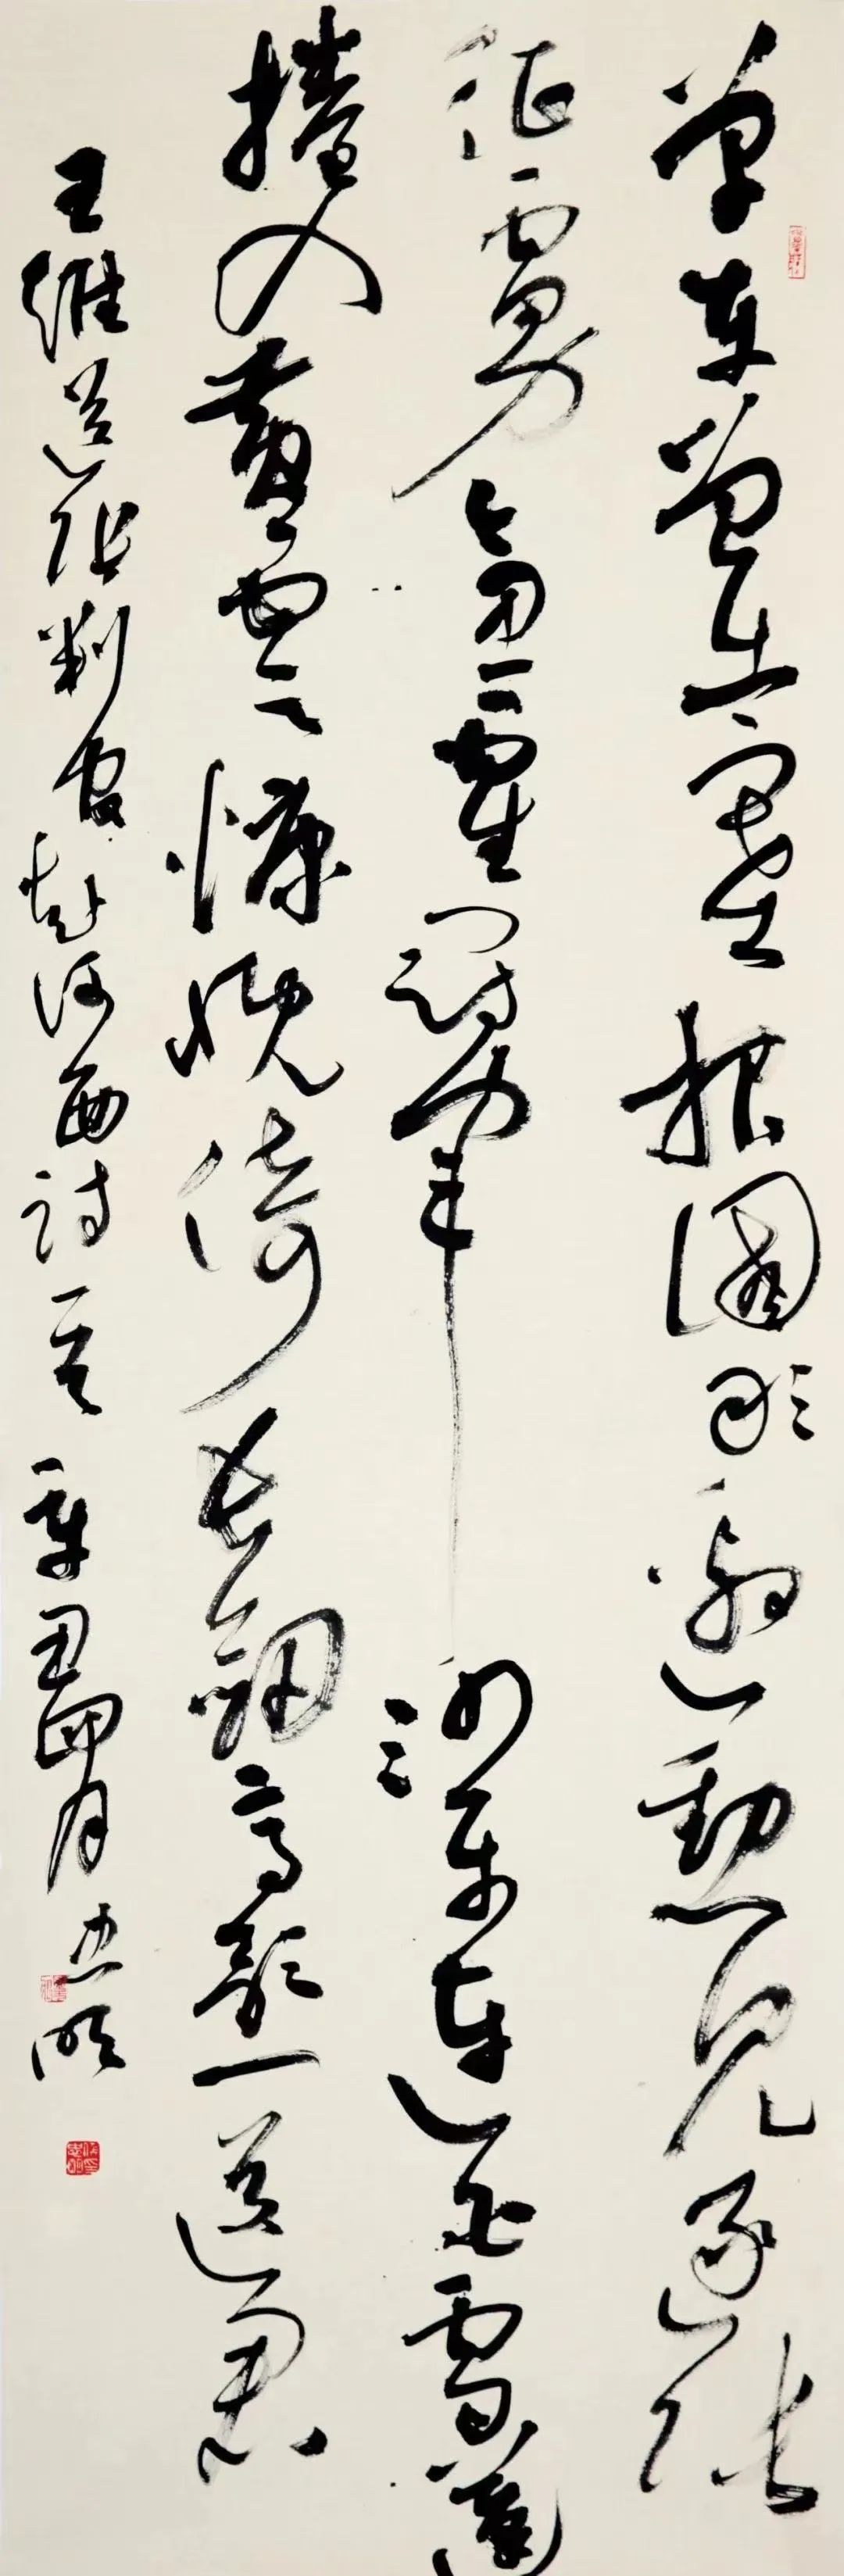 單車曾出塞報國敢邀勳見逐張
征虜今思霍冠軍沙平連白雪蓬
捲入黃雲慷慨倚長劍高歌一送君
王維送張判官赴河西詩一首 辛丑四月 忠明